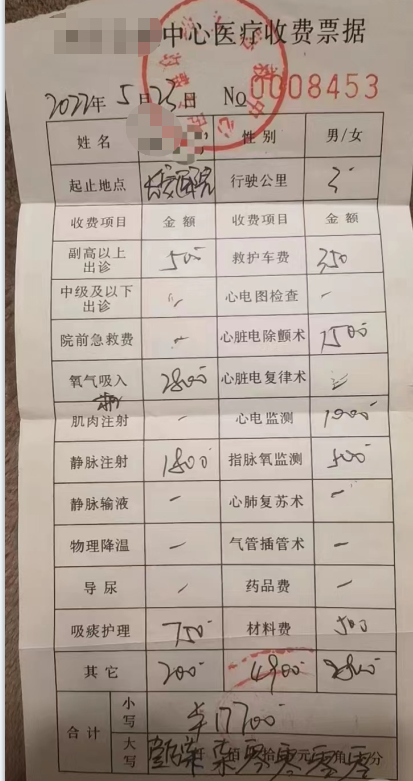 中心医疗收费票据
2022年5月23日 No 0008453
姓名 性别 男/女
起止地点 行驶公里 3
收费项目 金额 收费项目 金额
副高以上出诊 500 救护车费 350
中级及以下出诊 - 心电图检查 -
院前急救费 - 心脏电除颤术 1500
氧气吸入 2800 心脏电复律术 -
肌肉注射 - 心电监测 1000
静脉注射 1800 指脉氧监测 500
静脉输液 - 心肺复苏术 -
物理降温 - 气管插管术 -
导尿 - 药品费 -
吸痰护理 750 材料费 500
其它 200 4900
合计 小写 ¥17700
大写 零 元零角零分